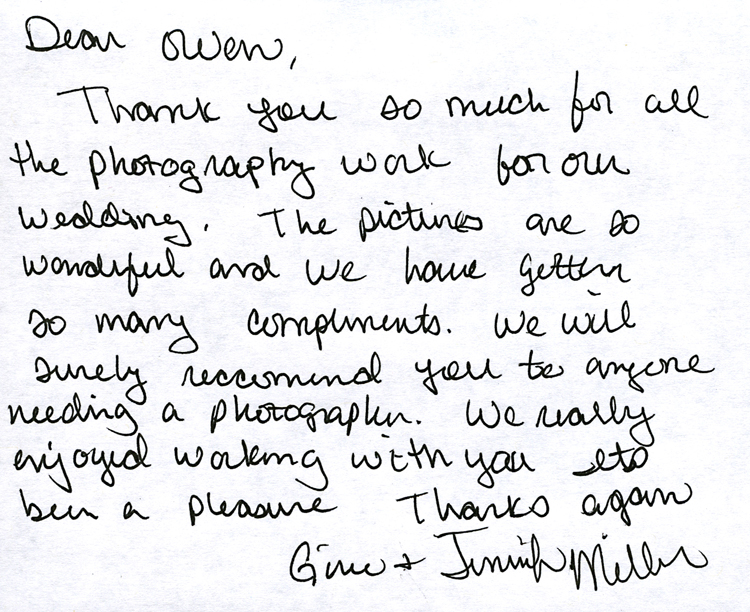 Dear Owen,
Thank you so much for all
the photography work for our
wedding. The pictures are so
wonderful and we have gotten
so many compliments. We will
surely reccomend you to anyone
needing a photographer. We really
enjoyed working with you its
been a pleasure Thanks again
+ Jennifer Miller